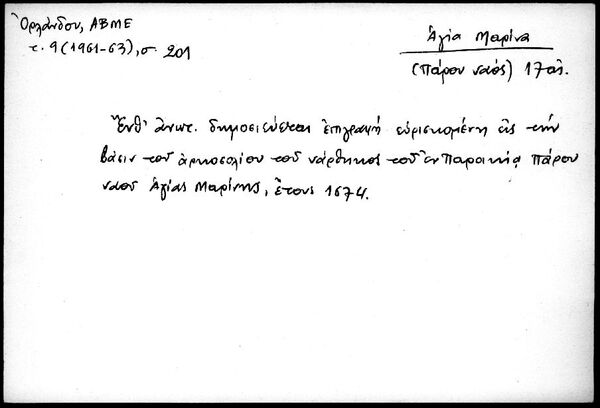 Ὀρλάνδου, ΑΒΜΕ
τ. 9 (1961-63), σ. 201
Ἁγία Μαρίνα
(Πάρου ναός) 17 αἰ.
Ἔνθ' ἀνωτ. δημοσιεύεται ἐπιγραφή εὑρισκομένη εἰς τήν
βάσιν τοῦ ἀρκοσολίου τοῦ νάρθηκος τοῦ ἐν Παροικίᾳ Πάρου
ναοῦ Ἁγίας Μαρίνης, ἔτους 1674.